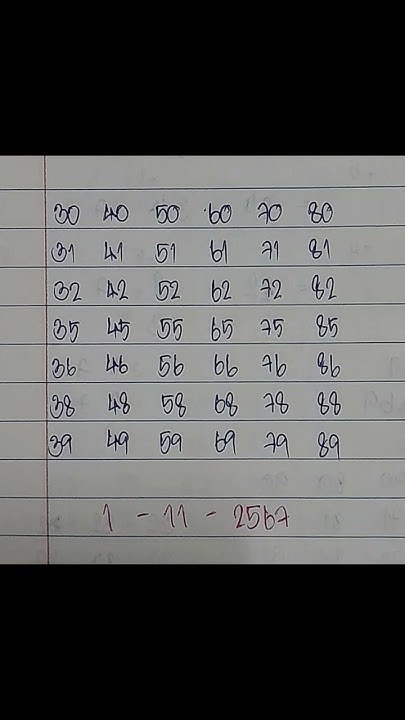 30 40 50 60 70 80
31 41 51 61 71 81
32 42 52 62 72 82
35 45 55 65 75 85
36 46 56 66 76 86
38 48 58 68 78 88
39 49 59 69 79 89
1 - 11 - 2567